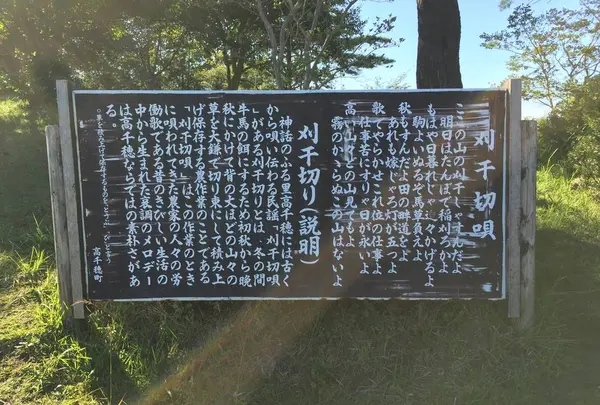 刈干切唄
ここの山の刈干しゃすんだよ
明日はたんぼで稲刈ろかよ
もはや日暮れじゃ迫々かげるよ
駒よいぬるぞ馬草負えよ
秋もすんだよ田の畔道をよ
あれも嫁じゃろ灯が五つよ
歌でやらかせこれ位の仕事よ
仕事苦にすりゃ日が永いよ
高い山々どの山見てもよ
霧のかからぬこの山はないよ
刈干切り(説明)
神話のふる里高千穂には古く
から唄い伝わる民謡「刈干切唄
」がある刈干切りとは、冬の間
牛馬の餌にするため初秋から晩
秋にかけて背の大ほどの山々の
草を大鎌で切り束にして積み上
げ保存する農作業のことである
「刈干切唄」はこの作業のとき
に唄われてきた農家の人々の労
働歌である昔のきびしい生活の
中から生まれた哀調のメロデー
は高千穂ならではの素朴さがあ
る。
高千穂町